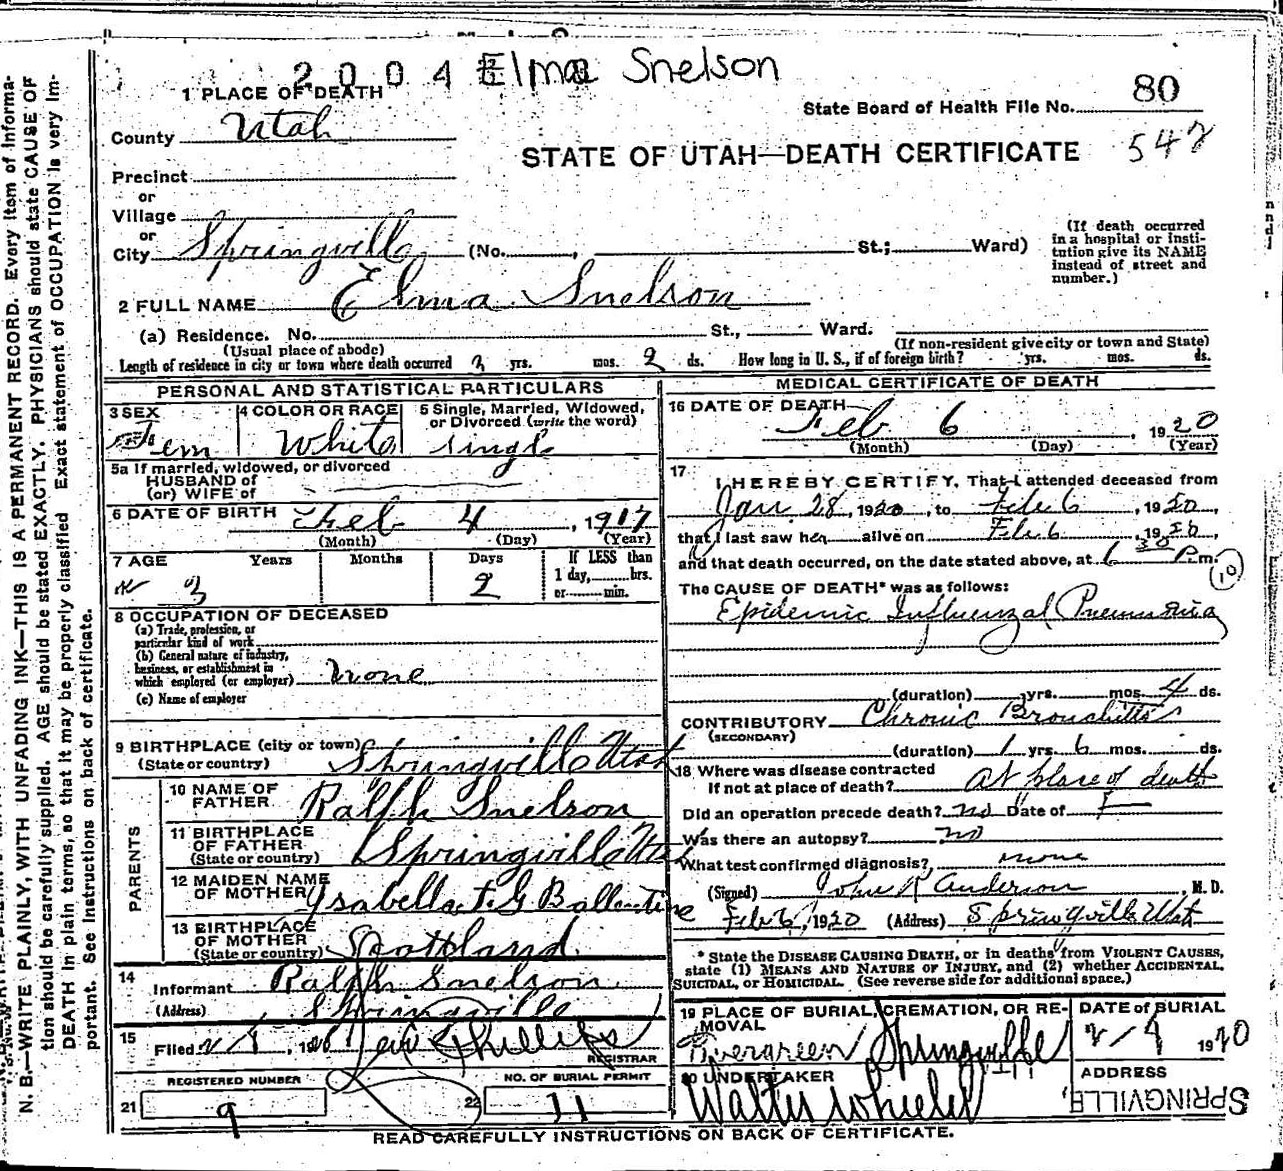 2004 Elma Snelson
1 PLACE OF DEATH
State Board of Health File No. 80
County Utah
STATE OF UTAH—DEATH CERTIFICATE 542
Precinct
or
Village
or
City Springville (No. , St.; Ward)
(If death occurred
in a hospital or insti-
tution give its NAME
instead of street and
number.)
2 FULL NAME Elma Snelson
(a) Residence. No. St., Ward.
(Usual place of abode) (If non-resident give city or town and State)
Length of residence in city or town where death occurred 3 yrs. mos. 2 ds. How long in U. S., if of foreign birth? yrs. mos. ds.
PERSONAL AND STATISTICAL PARTICULARS
3 SEX
Fem
4 COLOR OR RACE
White
5 Single, Married, Widowed,
or Divorced (write the word)
single
5a If married, widowed, or divorced
HUSBAND of
(or) WIFE of
6 DATE OF BIRTH Feb 4, 1917
(Month) (Day) (Year)
7 AGE Years Months Days If LESS than
1 day, hrs.
or min.
3 2
8 OCCUPATION OF DECEASED
(a) Trade, profession, or
particular kind of work
(b) General nature of industry,
business, or establishment in
which employed (or employer) none
(c) Name of employer
9 BIRTHPLACE (city or town)
(State or country) Springville Utah
PARENTS
10 NAME OF
FATHER Ralph Snelson
11 BIRTHPLACE
OF FATHER
(State or country) Springville Utah
12 MAIDEN NAME
OF MOTHER Isabella F. G Ballentine
13 BIRTHPLACE
OF MOTHER
(State or country) Scottland
14
Informant Ralph Snelson
(Address) Springville
15
Filed 2/9, 1920 Phillips
REGISTRAR
REGISTERED NUMBER
21 9
NO. OF BURIAL PERMIT
22 11
MEDICAL CERTIFICATE OF DEATH
16 DATE OF DEATH
Feb 6, 1920
(Month) (Day) (Year)
17
I HEREBY CERTIFY, That I attended deceased from
Jan 28, 1920, to Feb 6, 1920,
that I last saw her alive on Feb 6, 1920,
and that death occurred, on the date stated above, at 6 30 P. m.
The CAUSE OF DEATH* was as follows: 10
Epidemic Influenzal Pneumonia
(duration) yrs. mos. 4 ds.
CONTRIBUTORY Chronic Bronchittis
(SECONDARY)
(duration) 1 yrs. 6 mos. ds.
18 Where was disease contracted
If not at place of death? At place of death
Did an operation precede death? no Date of
Was there an autopsy? no
What test confirmed diagnosis? none
(Signed) John R Anderson, M. D.
Feb 6, 1920 (Address) Springville Utah
* State the DISEASE CAUSING DEATH, or in deaths from VIOLENT CAUSES,
state (1) MEANS AND NATURE OF INJURY, and (2) whether ACCIDENTAL,
SUICIDAL, or HOMICIDAL. (See reverse side for additional space.)
19 PLACE OF BURIAL, CREMATION, OR RE-
MOVAL
Evergreen Springville
DATE of BURIAL
2/9 1920
20 UNDERTAKER
Walter Wheeler
ADDRESS
SPRINGVILLE,
READ CAREFULLY INSTRUCTIONS ON BACK OF CERTIFICATE.
N. B.—WRITE PLAINLY, WITH UNFADING INK—THIS IS A PERMANENT RECORD. Every item of informa-
tion should be carefully supplied. AGE should be stated EXACTLY. PHYSICIANS should state CAUSE OF
DEATH in plain terms, so that it may be properly classified. Exact statement of OCCUPATION is very im-
portant. See instructions on back of certificate.